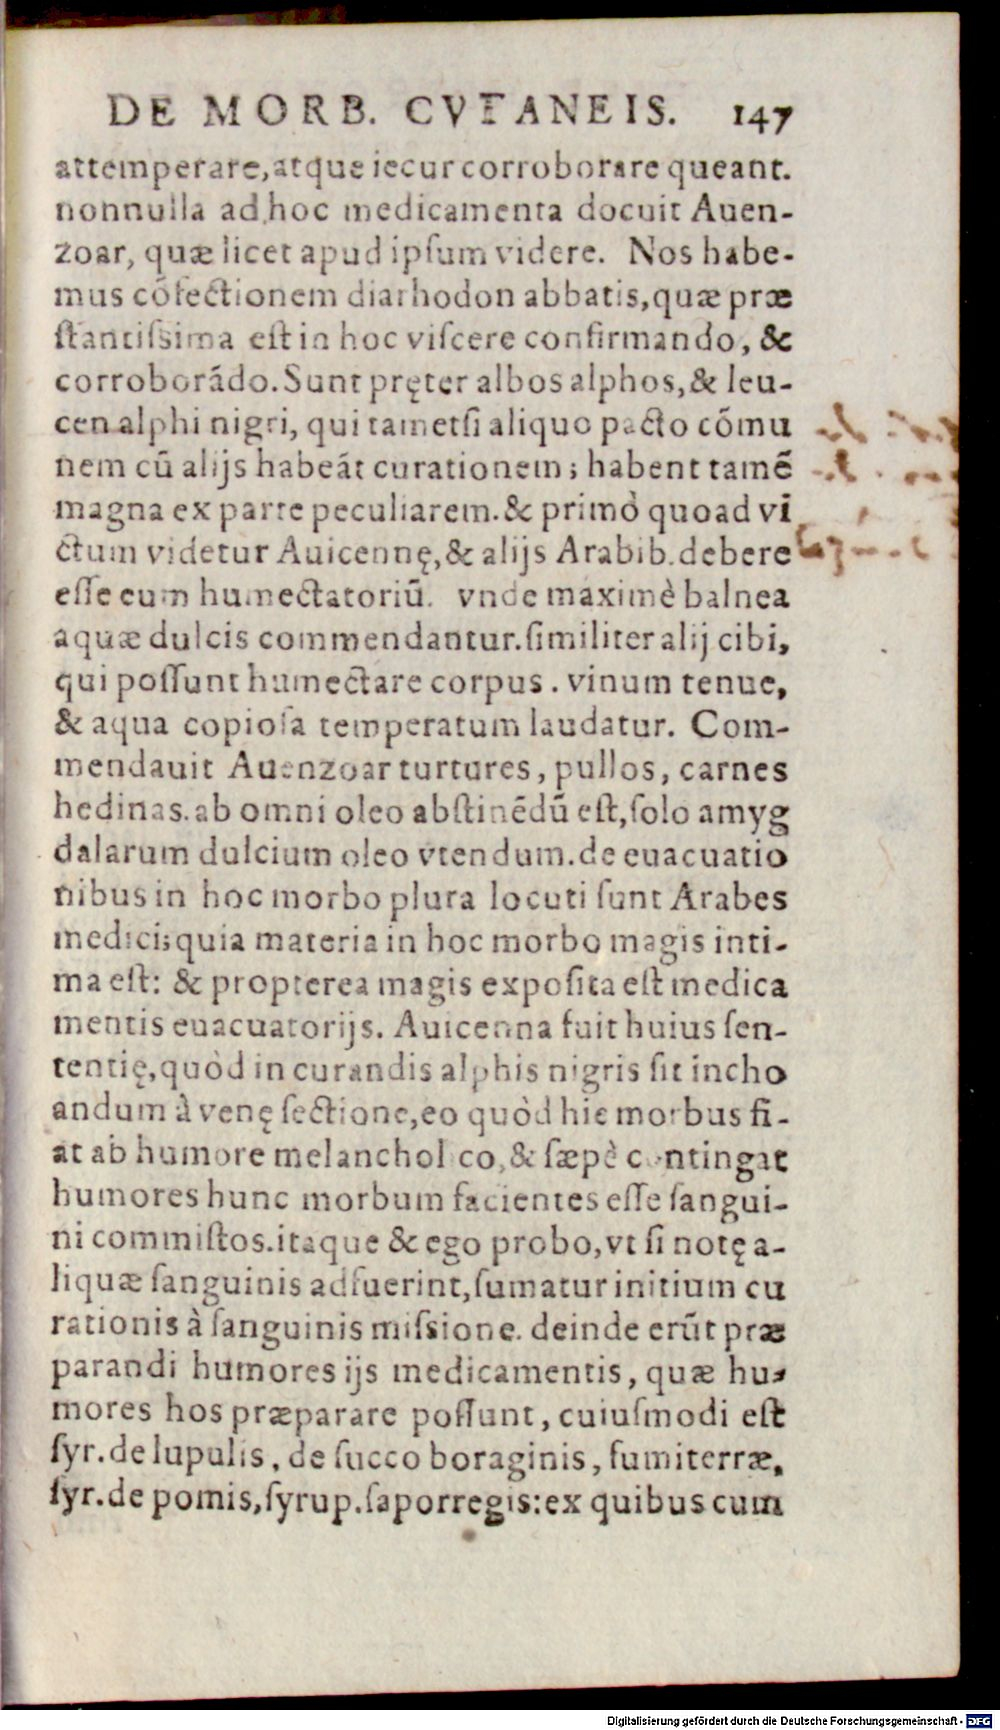 DE MORB. CVTANEIS. 147
attemperare, atque iecur corroborare queant.
nonnulla ad hoc medicamenta docuit Auen-
zoar, quæ licet apud ipſum videre. Nos habe-
mus cõfectionem diarhodon abbatis, quæ præ
ſtantiſsima eſt in hoc viſcere confirmando, &
corroborãdo. Sunt pręter albos alphos, & leu-
cen alphi nigri, qui tametſi aliquo pacto cõmu
nem cũ alijs habeãt curationem; habent tamẽ
magna ex parte peculiarem. & primò quoad vi
ctum videtur Auicennę, & alijs Arabib. debere
eſſe eum humectatoriũ. vnde maximè balnea
aquæ dulcis commendantur. ſimiliter alij cibi,
qui poſſunt humectare corpus. vinum tenue,
& aqua copioſa temperatum laudatur. Com-
mendauit Auenzoar turtures, pullos, carnes
hedinas. ab omni oleo abſtinẽdũ eſt, ſolo amyg
dalarum dulcium oleo vtendum. de euacuatio
nibus in hoc morbo plura locuti ſunt Arabes
medici; quia materia in hoc morbo magis inti-
ma eſt: & propterea magis expoſita eſt medica
mentis euacuatorijs. Auicenna fuit huius ſen-
tentię, quòd in curandis alphis nigris ſit incho
andum à venę ſectione, eo quòd hic morbus fi-
at ab humore melancholico, & ſæpè contingat
humores hunc morbum facientes eſſe ſangui-
ni commiſtos. itaque & ego probo, vt ſi notę a-
liquæ ſanguinis adfuerint, ſumatur initium cu
rationis à ſanguinis miſsione. deinde erũt præ
parandi humores ijs medicamentis, quæ hu-
mores hos præparare poſſunt, cuiuſmodi eſt
ſyr. de lupulis, de ſucco boraginis, fumiterræ,
ſyr. de pomis, ſyrup. ſaporregis: ex quibus cum
Digitalisierung gefördert durch die Deutsche Forschungsgemeinschaft - DFG